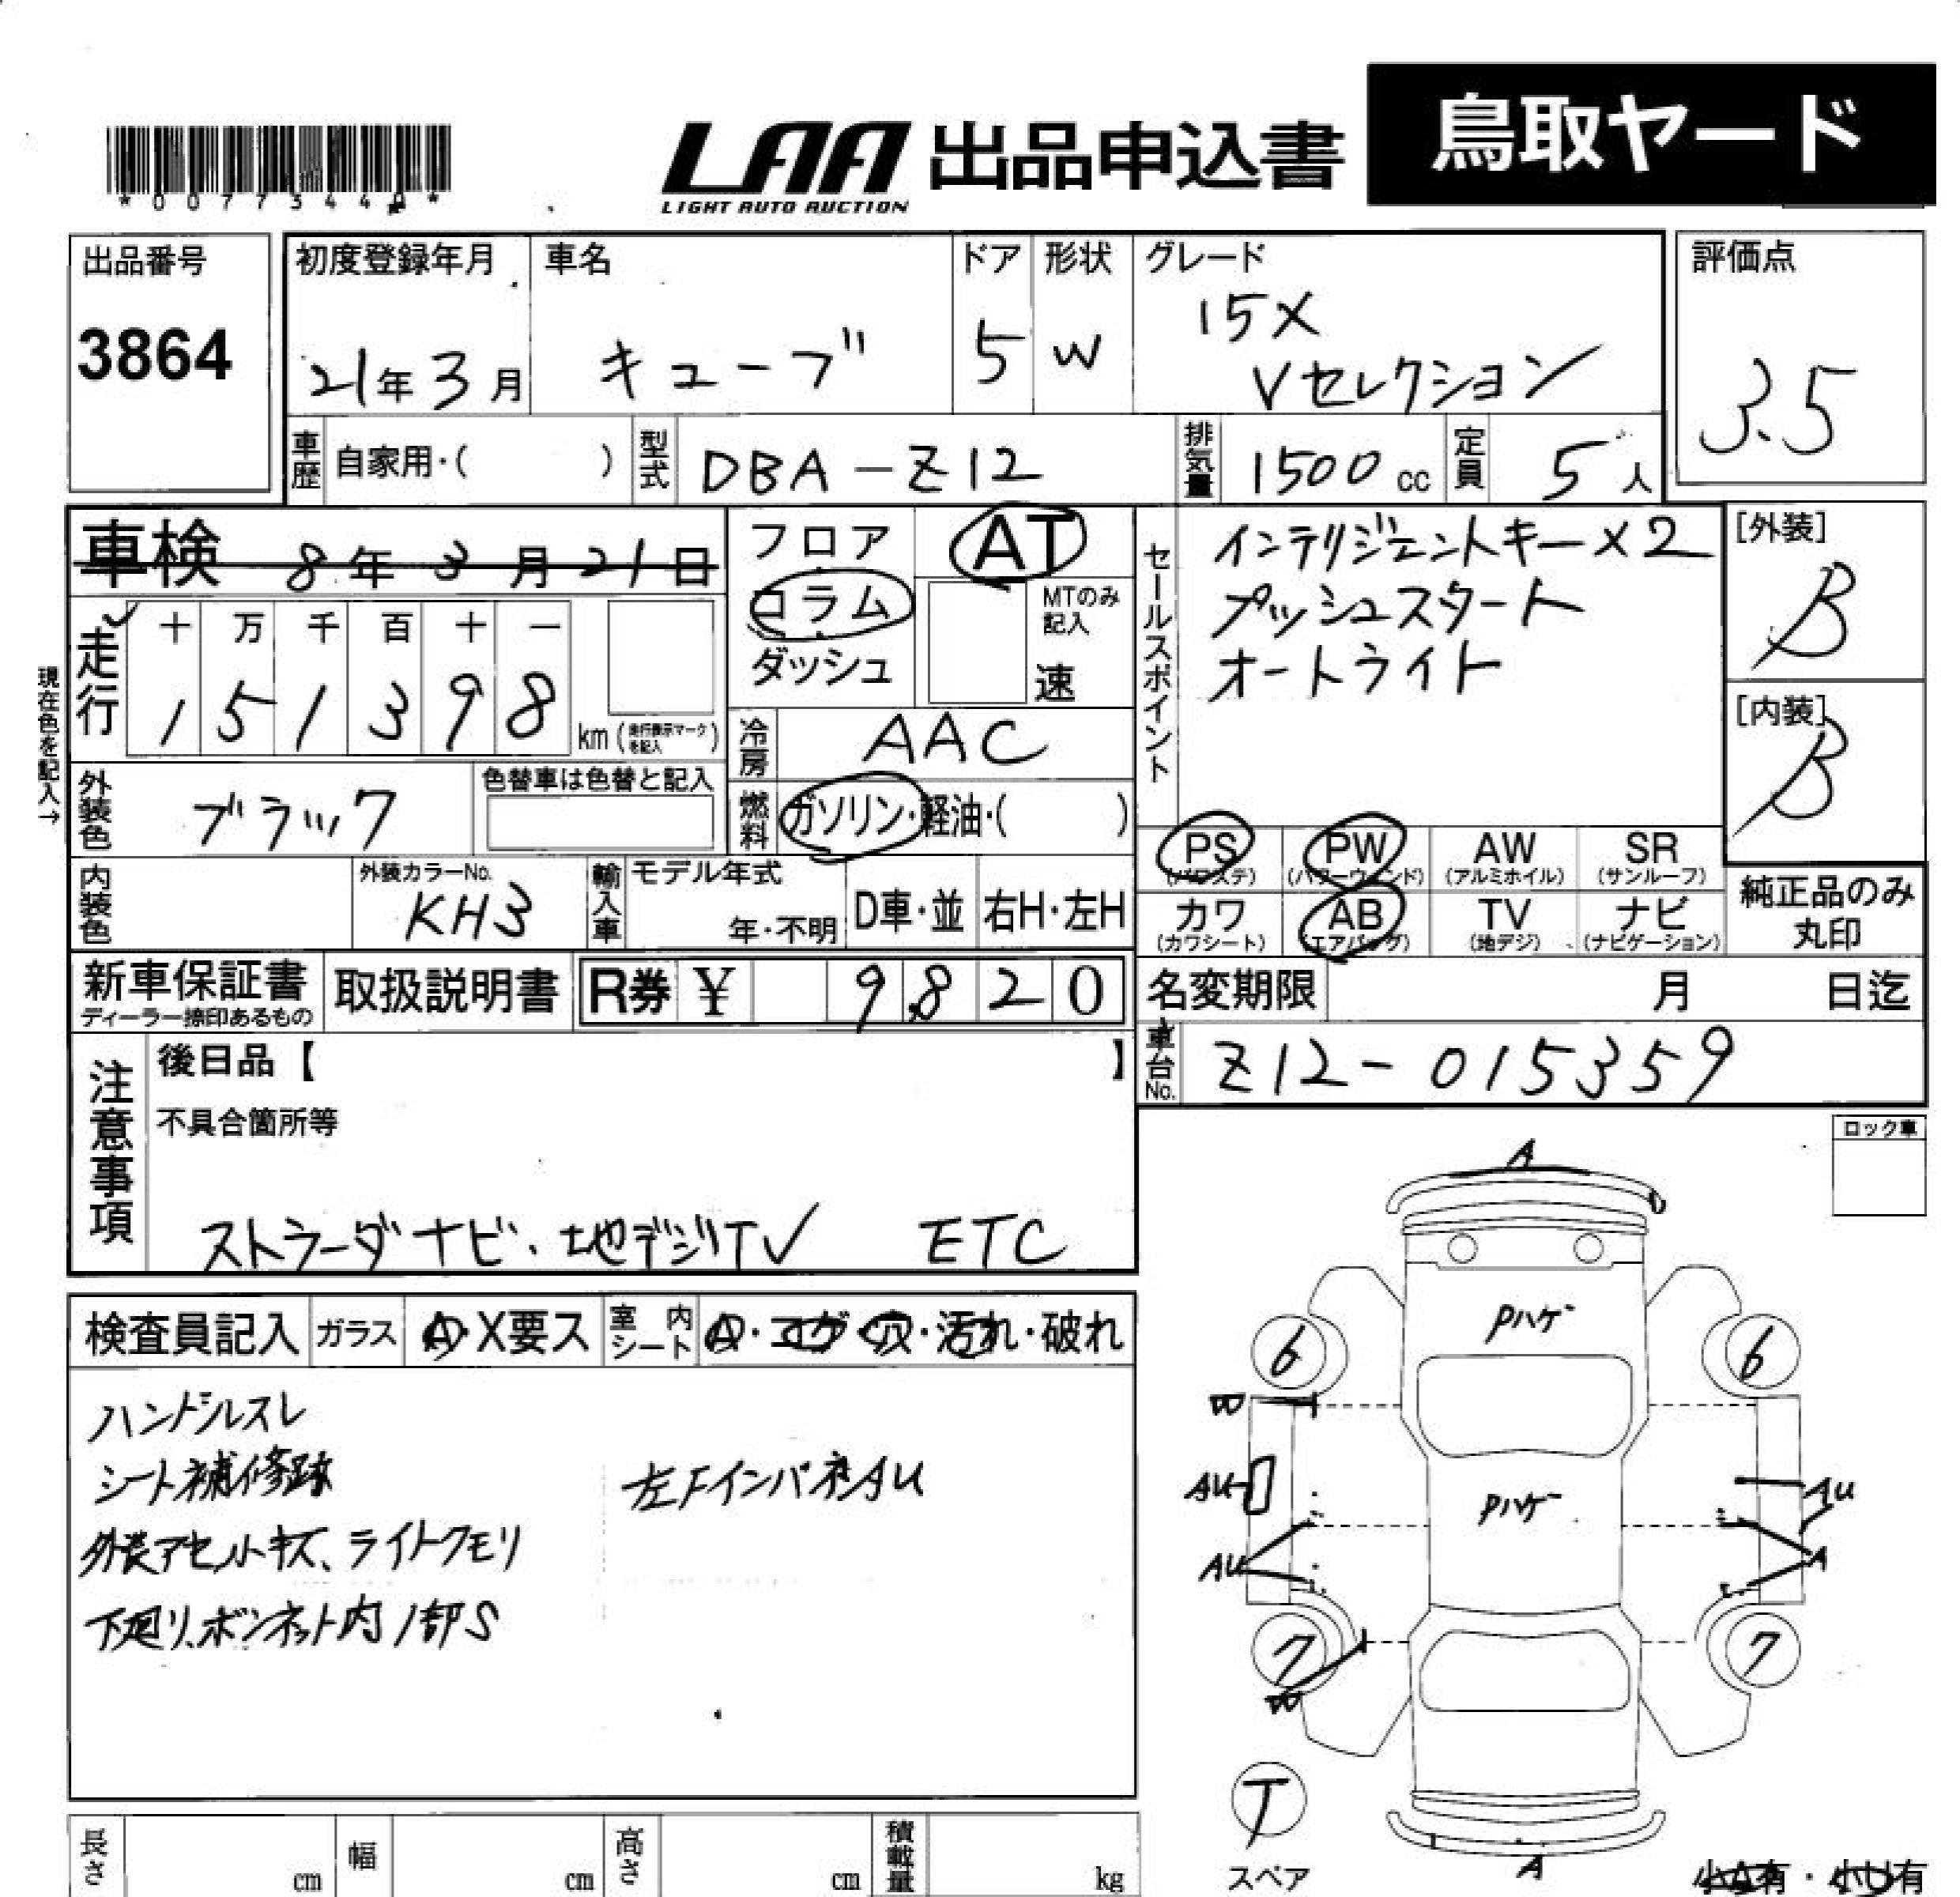 *00773440*
LAA
LIGHT AUTO AUCTION
出品申込書
鳥取ヤード
出品番号
3864
初度登録年月
21年3月
車名
キューブ
ドア
5
形状
W
グレード
15X
Vセレクション
評価点
3.5
車歴
自家用・( )
型式
DBA-Z12
排気量
1500cc
定員
5人
車検 8年3月21日
走行
十 万 千 百 十 一
1 5 1 3 9 8
km(走行表示マークを記入)
現在色を記入→
フロア
コラム
ダッシュ
AT
MTのみ記入
速
冷房
AAC
燃料
ガソリン・軽油・( )
セールスポイント
インテリジェントキー×2
プッシュスタート
オートライト
[外装]
B
[内装]
B
外装色
ブラック
色替車は色替と記入
内装色
外装カラーNo.
KH3
輸入車
モデル年式
年・不明
D車・並
右H・左H
PS
(パワステ)
PW
(パワーウィンド)
AW
(アルミホイル)
SR
(サンルーフ)
カワ
(カワシート)
AB
(エアバッグ)
TV
(地デジ)
ナビ
(ナビゲーション)
純正品のみ
丸印
新車保証書
ディーラー捺印あるもの
取扱説明書
R券 ¥ 9,820
名変期限
月 日迄
車台No.
Z12-015359
注意事項
後日品【 】
不具合箇所等
ストラーダナビ、地デジTV ETC
ロック車
検査員記入
ガラス
A・X要ス
室内シート
A・コゲ・穴・汚れ・破れ
ハンドルスレ
シート補修跡
左FインパネAU
外装アセントキズ、ライトクモリ
下廻り、ボンネット内1部S
A
Pハゲ
6
6
W
AU
Pハゲ
AU
AU
A
7
7
W
T
スペア
A
小A有・小U有
長さ
cm
幅
cm
高さ
cm
積載量
kg